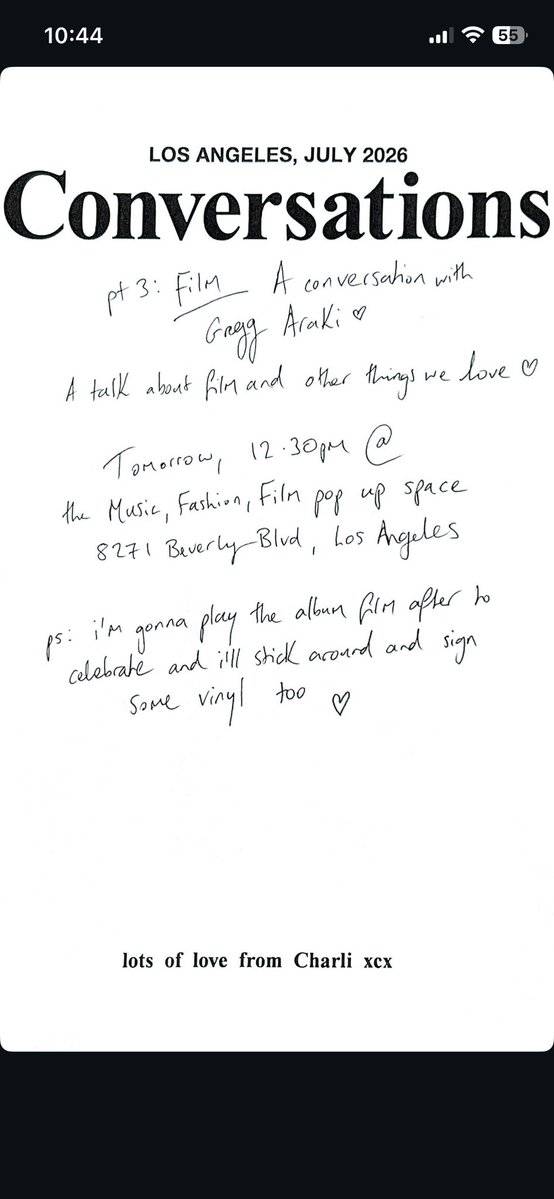 10:44
55
LOS ANGELES, JULY 2026
Conversations
pt 3: Film A conversation with
Gregg Araki ♡
A talk about film and other things we love ♡
Tomorrow, 12.30pm @
the Music, Fashion, Film pop up space
8271 Beverly Blvd, Los Angeles
ps: i'm gonna play the album film after to
celebrate and i'll stick around and sign
some vinyl too ♡
lots of love from Charli xcx